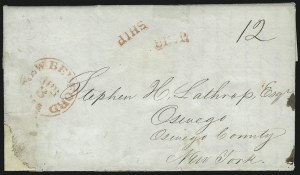 SHIP
12
NEW BEDFORD
Stephen H. Lathrop, Esq
Oswego
Oswego County
New York